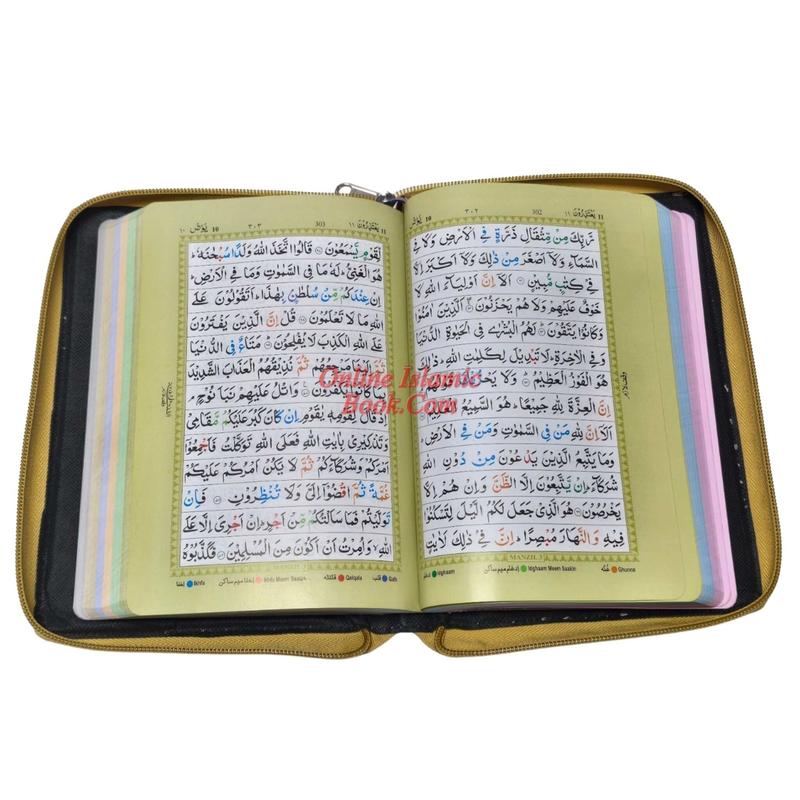 11 يَعْتَذِرُوْنَ ١١
302 ٣٠٢
يُوْنُس 10
رَّبِّكَ مِنْ مِّثْقَالِ ذَرَّةٍ فِي الْاَرْضِ وَلَا فِي
السَّمَآءِ وَلَاۤ اَصْغَرَ مِنْ ذٰلِكَ وَلَاۤ اَكْبَرَ اِلَّا
فِيْ كِتٰبٍ مُّبِيْنٍ اَلَاۤ اِنَّ اَوْلِيَآءَ اللّٰهِ لَا
خَوْفٌ عَلَيْهِمْ وَلَا هُمْ يَحْزَنُوْنَ الَّذِيْنَ اٰمَنُوْا
وَكَانُوْا يَتَّقُوْنَ لَهُمُ الْبُشْرٰى فِي الْحَيٰوةِ الدُّنْيَا
وَفِي الْاٰخِرَةِ لَا تَبْدِيْلَ لِكَلِمٰتِ اللّٰهِ ذٰلِكَ
هُوَ الْفَوْزُ الْعَظِيْمُ وَلَا يَحْزُنْكَ
اِنَّ الْعِزَّةَ لِلّٰهِ جَمِيْعًا هُوَ السَّمِيْعُ
اَلَاۤ اِنَّ لِلّٰهِ مَنْ فِي السَّمٰوٰتِ وَمَنْ فِي الْاَرْضِ
وَمَا يَتَّبِعُ الَّذِيْنَ يَدْعُوْنَ مِنْ دُوْنِ اللّٰهِ
شُرَكَآءَ اِنْ يَّتَّبِعُوْنَ اِلَّا الظَّنَّ وَاِنْ هُمْ اِلَّا
يَخْرُصُوْنَ هُوَ الَّذِيْ جَعَلَ لَكُمُ الَّيْلَ لِتَسْكُنُوْا
فِيْهِ وَالنَّهَارَ مُبْصِرًا اِنَّ فِيْ ذٰلِكَ لَاٰيٰتٍ
MANZIL 3
Ghunna غُنَّه
Idghaam Meem Saakin ادغام میم ساکن
Idghaam ادغام
11 يَعْتَذِرُوْنَ ١١
303 ٣٠٣
يُوْنُس 10 ١٠
لِّقَوْمٍ يَّسْمَعُوْنَ قَالُوا اتَّخَذَ اللّٰهُ وَلَدًا سُبْحٰنَهٗ
هُوَ الْغَنِيُّ لَهٗ مَا فِي السَّمٰوٰتِ وَمَا فِي الْاَرْضِ
اِنْ عِنْدَكُمْ مِّنْ سُلْطٰنٍۭ بِهٰذَا اَتَقُوْلُوْنَ عَلَى
اللّٰهِ مَا لَا تَعْلَمُوْنَ قُلْ اِنَّ الَّذِيْنَ يَفْتَرُوْنَ
عَلَى اللّٰهِ الْكَذِبَ لَا يُفْلِحُوْنَ مَتَاعٌ فِي الدُّنْيَا
ثُمَّ اِلَيْنَا مَرْجِعُهُمْ ثُمَّ نُذِيْقُهُمُ الْعَذَابَ الشَّدِيْدَ
بِمَا كَانُوْا يَكْفُرُوْنَ وَاتْلُ عَلَيْهِمْ نَبَاَ نُوْحٍ
اِذْ قَالَ لِقَوْمِهٖ يٰقَوْمِ اِنْ كَانَ كَبُرَ عَلَيْكُمْ مَّقَامِيْ
وَتَذْكِيْرِيْ بِاٰيٰتِ اللّٰهِ فَعَلَى اللّٰهِ تَوَكَّلْتُ فَاَجْمِعُوْۤا
اَمْرَكُمْ وَشُرَكَآءَكُمْ ثُمَّ لَا يَكُنْ اَمْرُكُمْ عَلَيْكُمْ
غُمَّةً ثُمَّ اقْضُوْۤا اِلَيَّ وَلَا تُنْظِرُوْنِ فَاِنْ
تَوَلَّيْتُمْ فَمَا سَاَلْتُكُمْ مِّنْ اَجْرٍ اِنْ اَجْرِيَ اِلَّا عَلَى
اللّٰهِ وَاُمِرْتُ اَنْ اَكُوْنَ مِنَ الْمُسْلِمِيْنَ فَكَذَّبُوْهُ
MANZIL 3
Qalb قلب
Qalqala قلقله
Ikhfa Meem Saakin اخفا میم ساکن
Ikhfa اخفا
Online Islamic
Book.Com